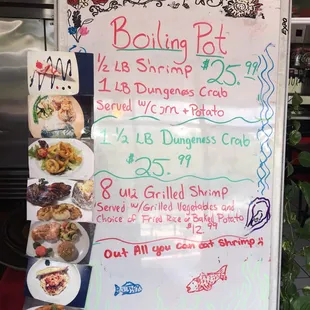 Boiling Pot
½ LB Shrimp $25.99
1 LB Dungeness Crab
Served w/Corn + Potato
1 ½ LB Dungeness Crab
$25.99
8 U12 Grilled Shrimp
Served w/Grilled Vegetables and
choice of Fried Rice or Baked Potato
$12.99
Out All you can eat Shrimp